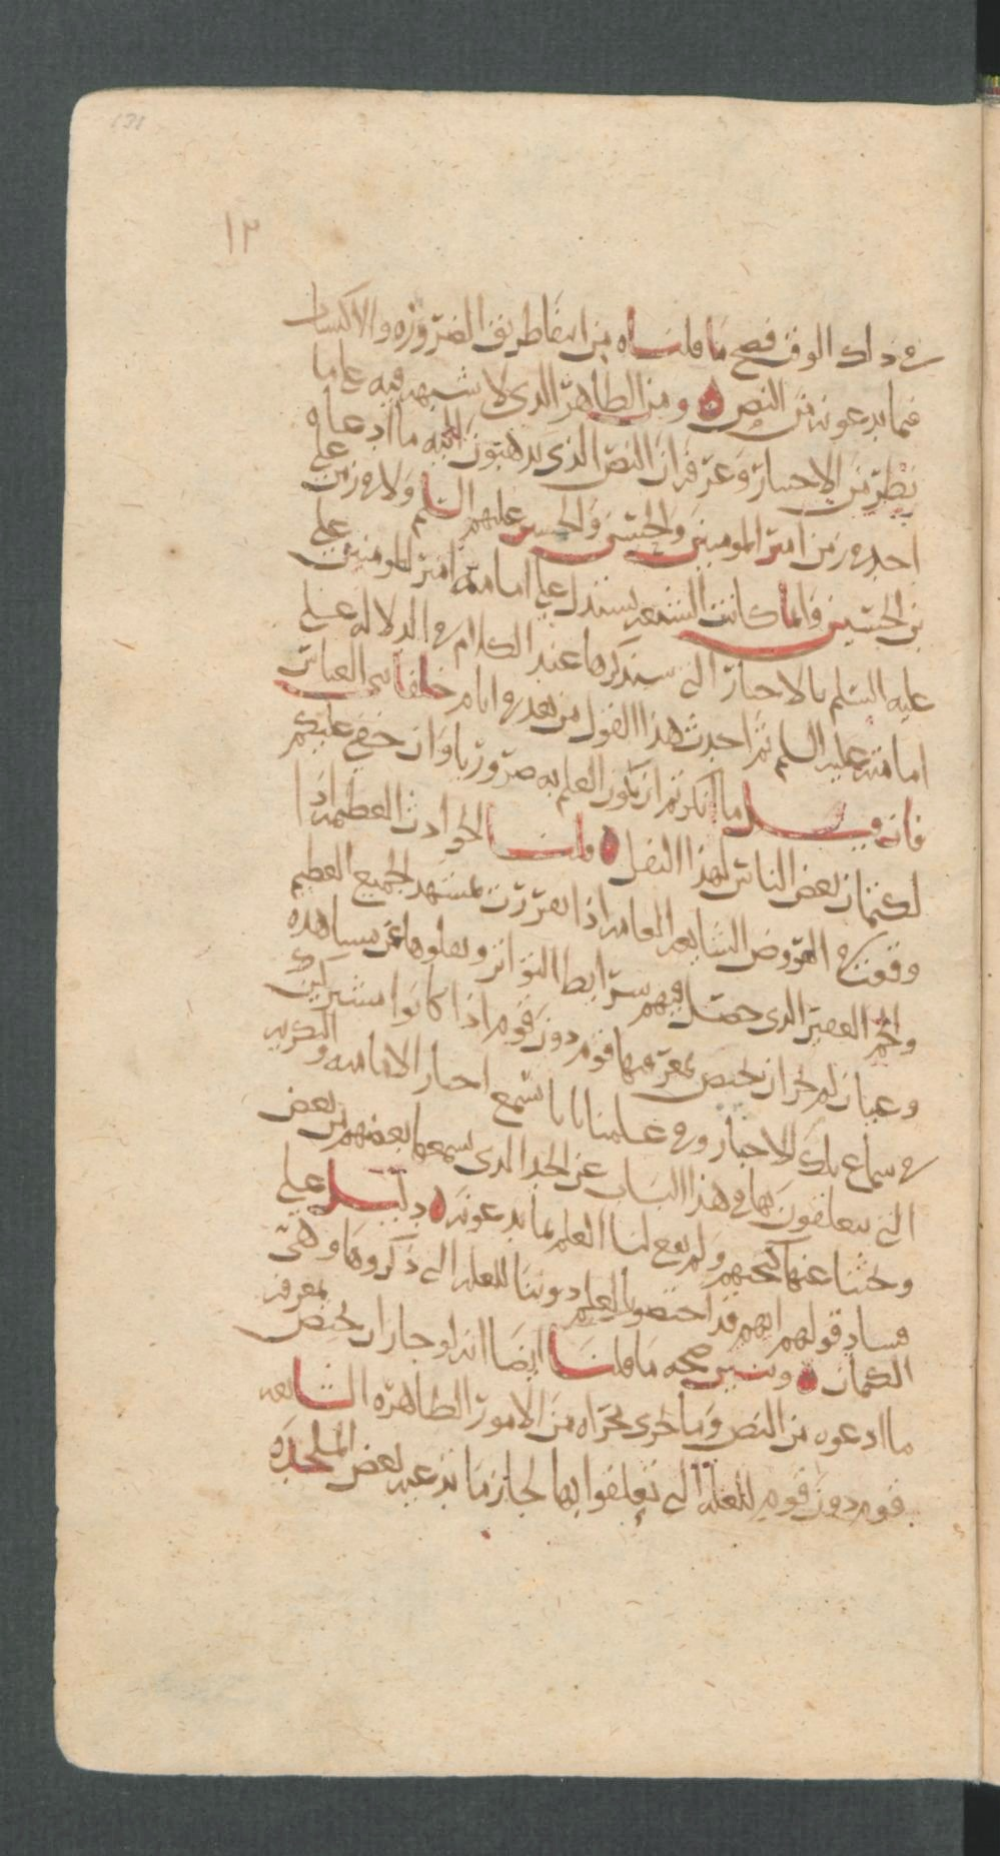 ١٢
في ذلك الوقت فصح ما قلناه من انتفا طريق الضرورة والاكتساب
فيما يدعونه من النص ومن الظاهر الذي لا شبهه فيه على ما
نظر من الاخبار وعرف ان النص الذي يذهبون اليه ما ادعاه
احد في زمن امير المومنين والحسن والحسين عليهم السلم ولا في زمن علي
بن الحسين وانما كانت الشيعه تستدل على امامة امير المومنين علي
عليه السلم بالاخبار التي سنذكرها عند الكلام في الدلاله على
امامته عليه السلم ثم احدث هذا القول من بعد في ايام خلفا بني العباس
فان قيل ما انكرتم ان يكون العلم به ضروريا وان خفي عليكم
لكتمان بعض الناس لهذا النقل قلنا الحوادث العظيمه اذا
وقعت والفروض الشايعه العامه اذا تقررت بمشهد الجميع العظيم
والجم الغفير الذي حصل فيهم شرايط التواتر ونقلوها عن مشاهده
وعيان لم يجز ان يختص بمعرفتها قوم دون قوم اذا كانوا مشتركين
في سماع تلك الاخبار وفي علمنا بانا نسمع اخبار الاماميه والبكريه
التي يتعلقون بها في هذا الباب عن الحد الذي يسمعها بعضهم من بعض
وبحثنا عنها كبحثهم ولم يقع لنا العلم بما يدعونه دليل على
فساد قولهم انهم قد اختصوا بالعلم دوننا للعله التي ذكروها وهي
الكتمان ويبين صحه ما قلنا ايضا انه لو جاز ان يختص بمعرفه
ما ادعوه من النص وما جرى مجراه من الامور الظاهره الشايعه
قوم دون قوم للعله التي تعلقوا بها لجاز ما يدعيه بعض الملحده